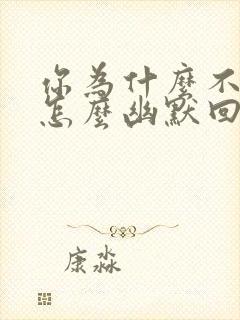 你為什麼不
怎麼幽默回
康淼